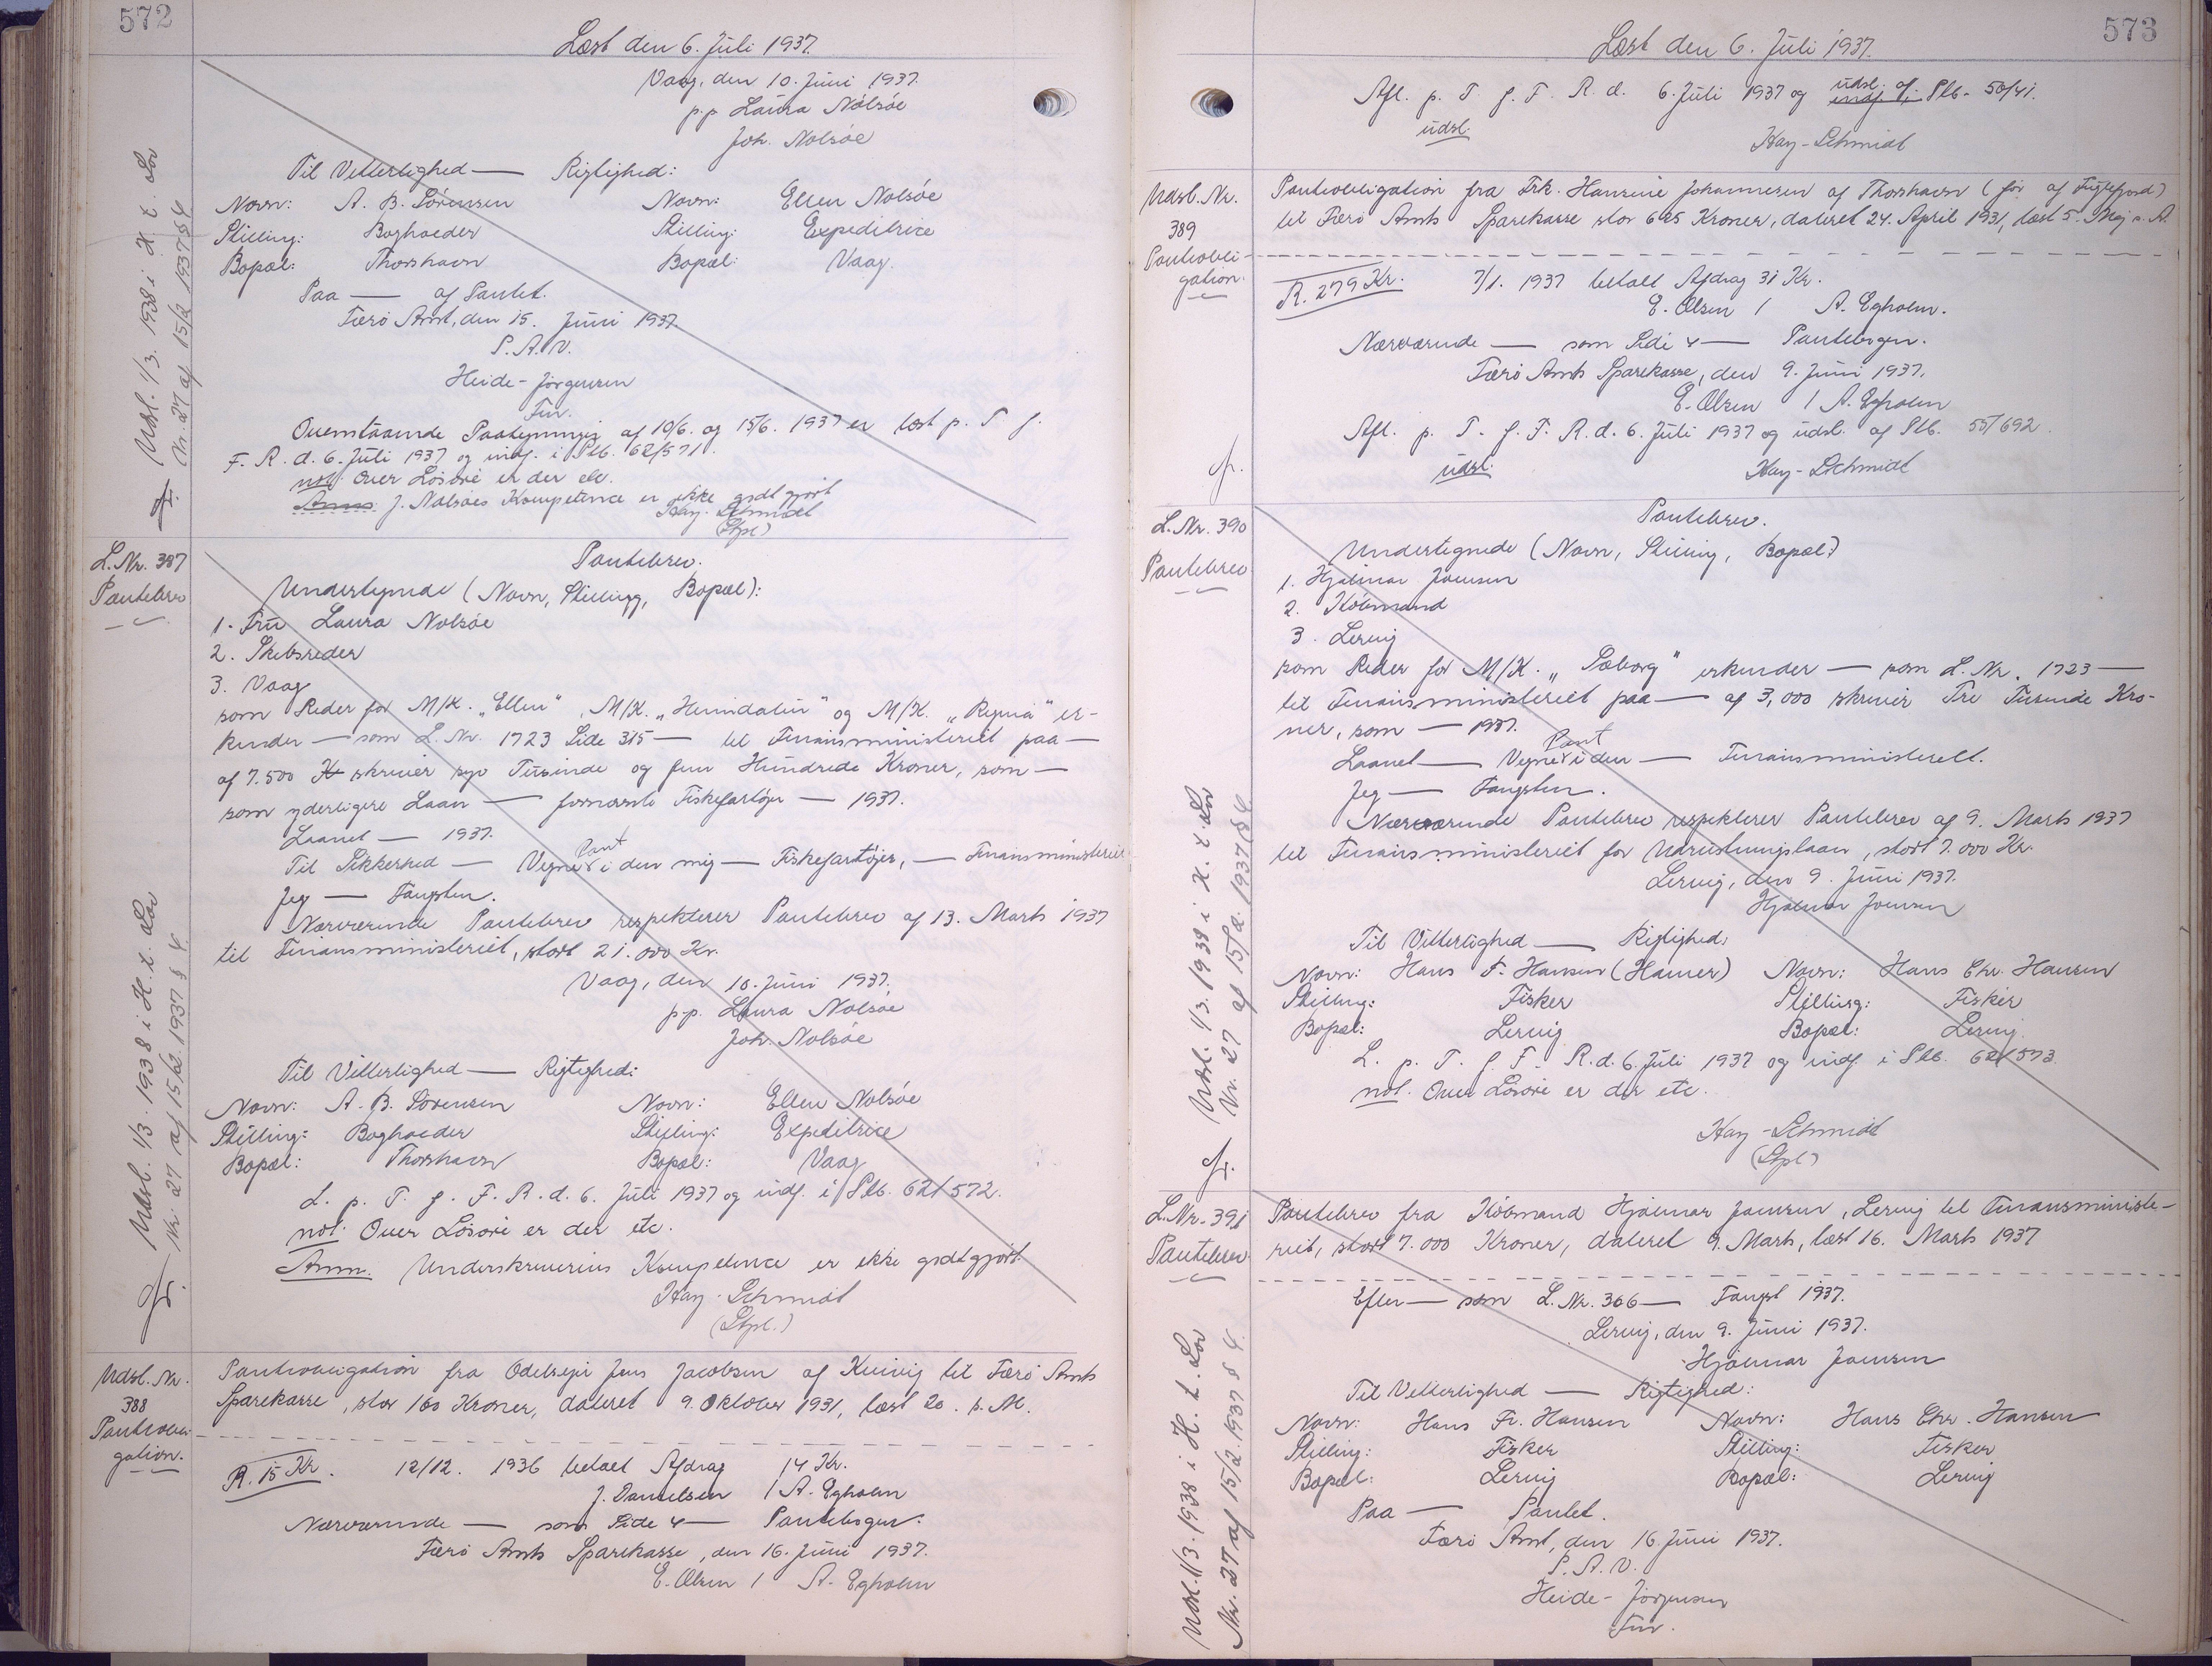 572
Læst den 6. Juli 1937.
Vaag, den 10. Juni 1937.
p.p. Laura Nolsøe
Joh. Nolsøe
Til Vitterlighed — Rigtighed:
Navn: A. B. Sørensen Navn: Ellen Nolsøe
Stilling: Bogholder Stilling: Expeditrice
Bopæl: Thorshavn Bopæl: Vaag.
Paa — af Pantet.
Færø Amt, den 15. Juni 1937.
P.A.V.
Heide-Jørgensen
Fm.
Ovenstaaende Paategninger af 10/6. og 15/6. 1937 er læst p. T. f.
F. R. d. 6. Juli 1937 og indf. i Ptb. 62/571.
not. Over Løsøre er der etc.
Anm. J. Nolsøes Kompetence er ikke godtgjort
Hay-Schmidt
(Stpl)
Udsl. 1/3. 1938 i H. t. Lov
Nr. 27 af 15/2 1937 § 4
L. Nr. 387
Pantebrev
Pantebrev.
Undertegnede (Navn, Stilling, Bopæl):
1. Fru Laura Nolsøe
2. Skibsreder
3. Vaag
som Reder for M/K. „Ellen", M/K. „Heimdalin" og M/K. „Regina" er-
kender — som L. Nr. 1723 Side 315 — til Finansministeriet paa —
af 7.500 Kr skriver syv Tusinde og fem Hundrede Kroner, som —
som yderligere Laan — fornævnte Fiskefartøjer — 1937.
Laanet — 1937.
Til Sikkerhed — Vegne Pant i den mig — Fiskefartøjer, — Finansministeriet
Jeg — Fangsten.
Nærværende Pantebrev respekterer Pantebrev af 13. Marts 1937
til Finansministeriet, stort 21.000 Kr.
Vaag, den 10. Juni 1937.
p.p. Laura Nolsøe
Joh. Nolsøe
Til Vitterlighed — Rigtighed:
Navn: A. B. Sørensen Navn: Ellen Nolsøe
Stilling: Bogholder Stilling: Expeditrice
Bopæl: Thorshavn Bopæl: Vaag
L. p. T. f. F. R. d. 6. Juli 1937 og indf. i Ptb. 62/572.
not. Over Løsøre er der etc.
Anm. Underskriverens Kompetence er ikke godtgjort.
Hay-Schmidt
(Stpl.)
Udsl. 1/3. 1938 i H. t. Lov
Nr. 27 af 15/2. 1937 § 4.
Udsl. Nr.
388
Pantobli-
gation.
Pantobligation fra Odelsejer Jens Jacobsen af Kvivig til Færø Amts
Sparekasse, stor 160 Kroner, dateret 9. Oktober 1931, læst 20. s. M.
R. 15 Kr. 12/12. 1936 betalt Afdrag 14 Kr.
J. Danielsen / A. Egholm
Nærværende — som Side 4 — Pantebogen.
Færø Amts Sparekasse, den 16. Juni 1937.
E. Olsen / A. Egholm
573
Læst den 6. Juli 1937.
Afl. p. T. f. F. R. d. 6. Juli 1937 og indf. af udsl. af Ptb. 50/41.
udsl.
Hay-Schmidt
Udsl. Nr.
389
Pantobli-
gation.
Pantobligation fra Frk. Hansine Johannesen af Thorshavn (før af Fuglefjord)
til Færø Amts Sparekasse stor 625 Kroner, dateret 24. April 1931, læst 5. Maj s. A.
R. 279 Kr. 7/1. 1937 betalt Afdrag 31 Kr.
E. Olsen / A. Egholm.
Nærværende — som Side 4 — Pantebogen.
Færø Amts Sparekasse, den 9. Juni 1937.
E. Olsen / A. Egholm
Afl. p. T. f. F. R. d. 6. Juli 1937 og udsl. af Ptb. 55/692.
udsl.
Hay-Schmidt
L. Nr. 390
Pantebrev
Pantebrev.
Undertegnede (Navn, Stilling, Bopæl)
1. Hjalmar Joensen
2. Købmand
3. Lervig
som Reder for M/K. „Søborg" erkender — som L. Nr. 1723 —
til Finansministeriet paa — af 3,000 skriver Tre Tusinde Kro-
ner, som — 1937.
Laanet — Vegne Pant i den — Finansministeriet.
Jeg — Fangsten.
Nærværende Pantebrev respekterer Pantebrev af 9. Marts 1937
til Finansministeriet for Udrustningslaan, stort 7.000 Kr.
Lervig, den 9. Juni 1937.
Hjalmar Joensen
Til Vitterlighed — Rigtighed:
Navn: Hans F. Hansen (Hamer) Navn: Hans Chr. Hansen
Stilling: Fisker Stilling: Fisker
Bopæl: Lervig Bopæl: Lervig.
L. p. T. f. F. R. d. 6. Juli 1937 og indf. i Ptb. 62/573.
not. Over Løsøre er der etc.
Hay-Schmidt
(Stpl)
Udsl. 1/3. 1938 i H. t. Lov
Nr. 27 af 15/2. 1937 § 4
L. Nr. 391
Pantebrev
Pantebrev fra Købmand Hjalmar Joensen, Lervig til Finansministe-
riet, stort 7.000 Kroner, dateret 9. Marts, læst 16. Marts 1937
Efter — som L. Nr. 366 — Fangst 1937.
Lervig, den 9. Juni 1937.
Hjalmar Joensen
Til Vitterlighed — Rigtighed:
Navn: Hans Fr. Hansen Navn: Hans Chr. Hansen
Stilling: Fisker Stilling: Fisker
Bopæl: Lervig Bopæl: Lervig
Paa — Pantet.
Færø Amt, den 16. Juni 1937.
P.A.V.
Heide-Jørgensen
Fm.
Udsl. 1/3. 1938 i H. t. Lov
Nr. 27 af 15/2. 1937 § 4.